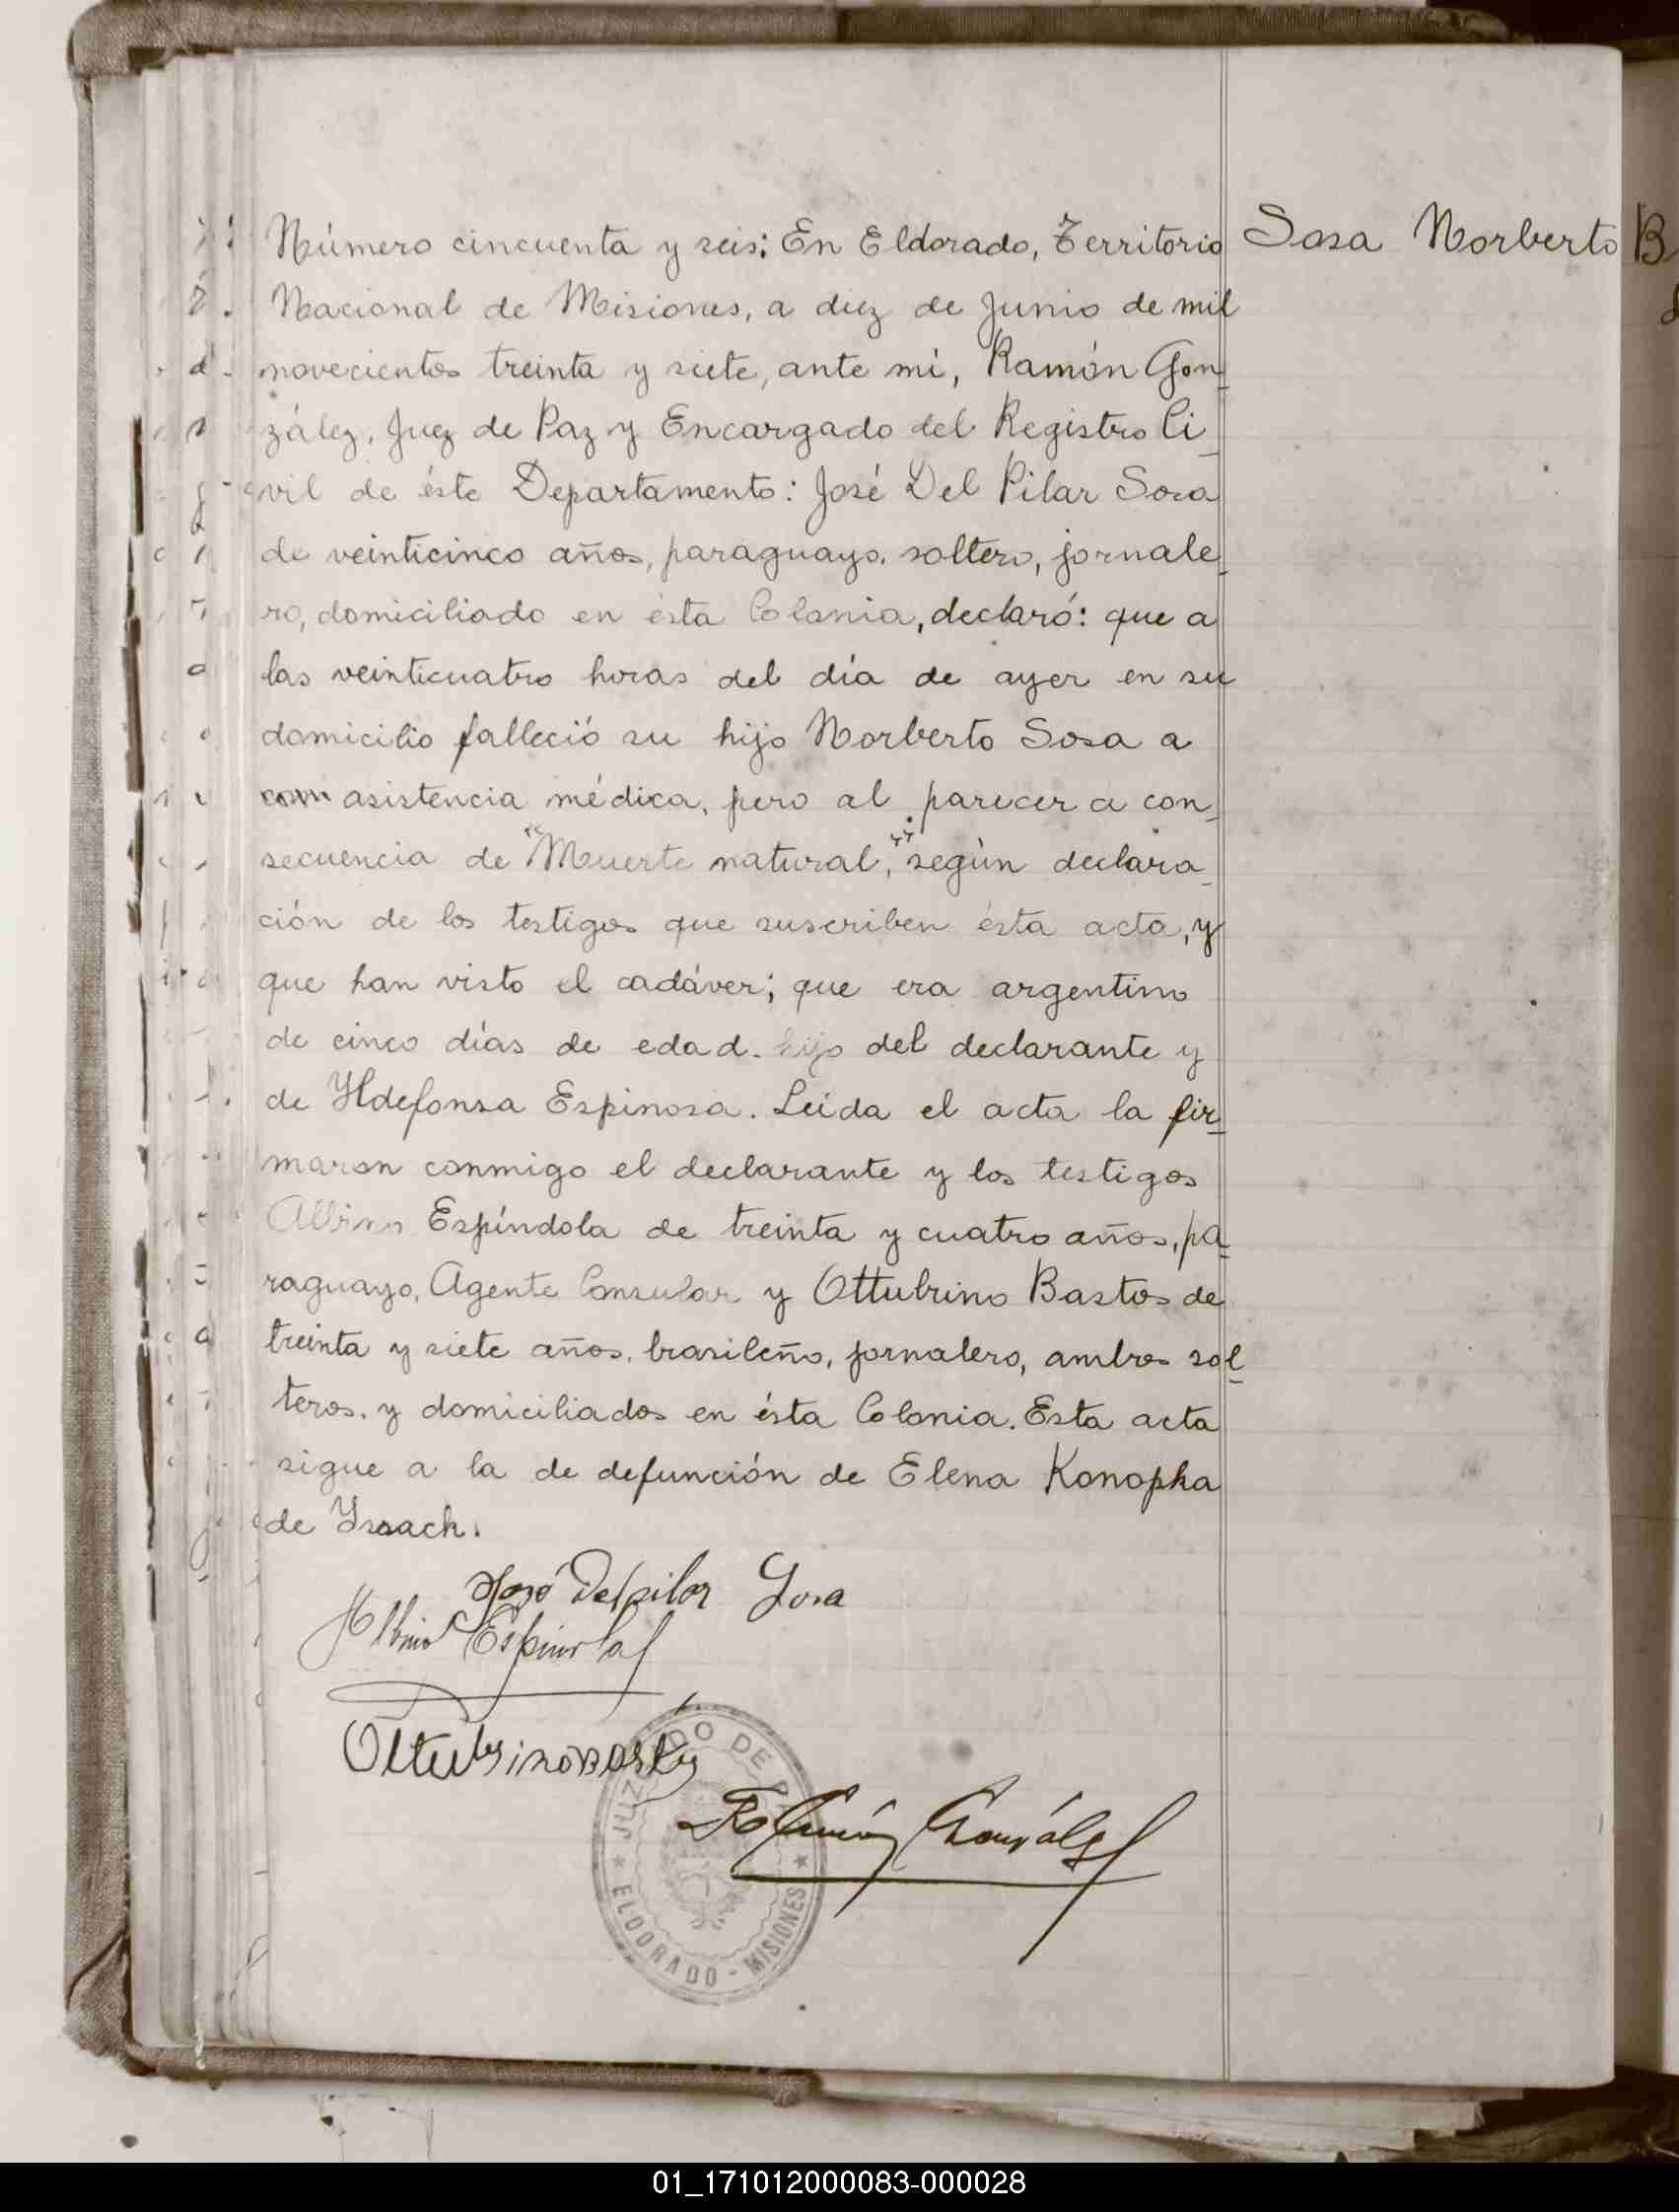 Sosa Norberto
Número cincuenta y seis: En Eldorado, Territorio
Nacional de Misiones, a diez de Junio de mil
novecientos treinta y siete, ante mí, Ramón Gon_
zález, Juez de Paz y Encargado del Registro Ci_
vil de ésta Departamento: José Del Pilar Sosa
de veinticinco años, paraguayo, soltero, jornale_
ro, domiciliado en ésta Colonia, declaró: que a
las veinticuatro horas del día de ayer en su
domicilio falleció su hijo Norberto Sosa a
asistencia médica, pero al parecer a con_
secuencia de "Muerte natural," según declara_
ción de los testigos que suscriben ésta acta, y
que han visto el cadáver; que era argentino
de cinco días de edad. hijo del declarante y
de Yldefonsa Espinosa. Leída el acta la fir_
maron conmigo el declarante y los testigos
Albino Espíndola de treinta y cuatro años, pa_
raguayo, Agente Consular y Ottubrino Bastos de
treinta y siete años, brasileño, jornalero, ambos sol_
teros, y domiciliados en ésta Colonia. Esta acta
sigue a la de defunción de Elena Konopka
de Yssach.
José Delpilar Sosa
Albino Espindola
Ottubrino Bastos
Ramón González
JUZGADO DE PAZ
★ ELDORADO - MISIONES ★
01_171012000083-000028